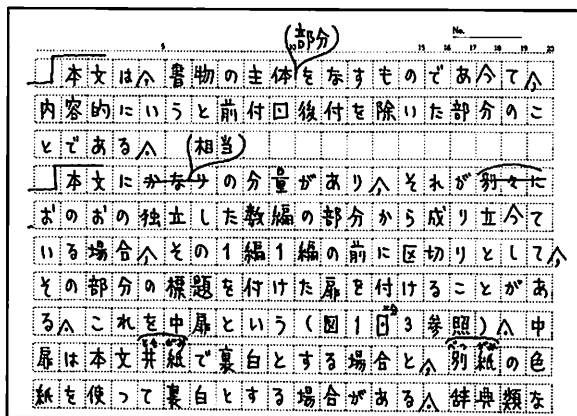 (部分)
No.
5 10 15 16 17 18 19 20
本文は、書物の主体をなすものであって、
内容的にいうと前付・後付を除いた部分のこ
とである。
(相当)
本文にかなりの分量があり、それが別々に
おのおの独立した数編の部分から成り立って
いる場合、その1編1編の前に区切りとして、
その部分の標題を付けた扉を付けることがあ
る。これを中扉という(図1・3参照)。中
扉は本文共紙で裏白とする場合と、別紙の色
紙を使って裏白とする場合がある。辞典類な